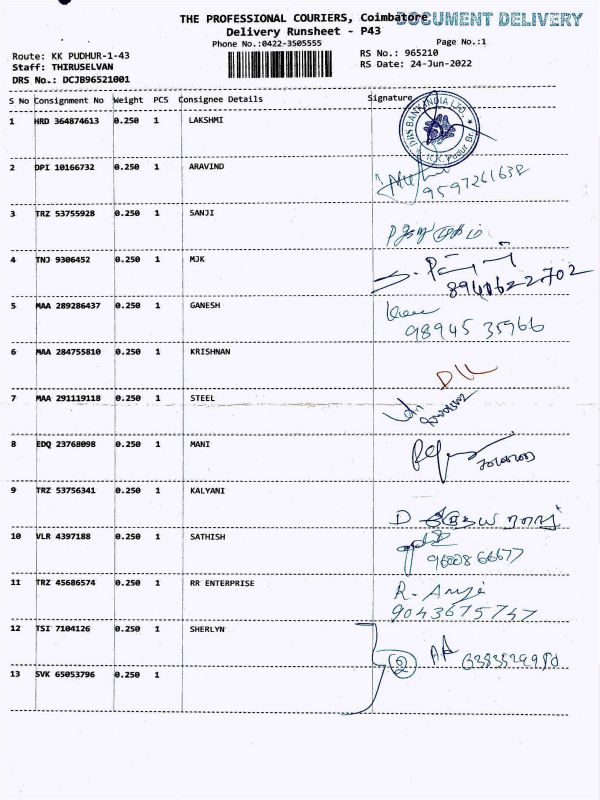 THE PROFESSIONAL COURIERS, Coimbatore DOCUMENT DELIVERY
Delivery Runsheet - P43
Phone No.:0422-3505555 Page No.:1
Route: KK PUDHUR-1-43 RS No.: 965210
Staff: THIRUSELVAN RS Date: 24-Jun-2022
DRS No.: DCJB96521001
S No Consignment No Weight PCS Consignee Details Signature
1 HRD 364874613 0.250 1 LAKSHMI
2 DPI 10166732 0.250 1 ARAVIND
9597261638
3 TRZ 53755928 0.250 1 SANJI
4 TNJ 9306452 0.250 1 MJK
8940622702
5 MAA 289286437 0.250 1 GANESH
98945 35966
6 MAA 284755810 0.250 1 KRISHNAN
7 MAA 291119118 0.250 1 STEEL
8 EDQ 23768098 0.250 1 MANI
9 TRZ 53756341 0.250 1 KALYANI
10 VLR 4397188 0.250 1 SATHISH
96008 66677
11 TRZ 45686574 0.250 1 RR ENTERPRISE
9043675747
12 TSI 7104126 0.250 1 SHERLYN
2
13 SVK 65053796 0.250 1